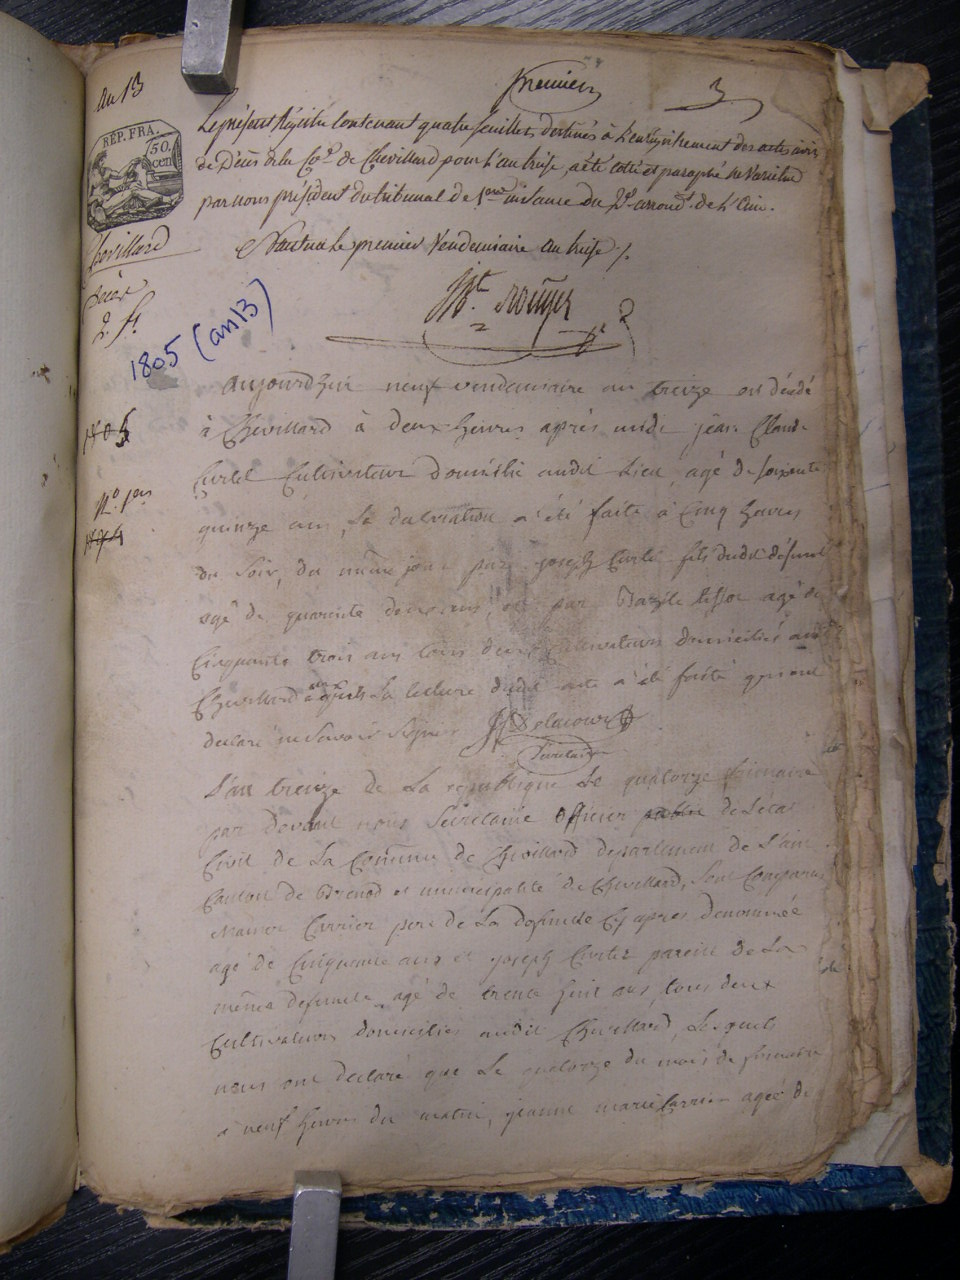 an 13
premier
3
RÉP. FRA.
50.
cen
Le présent Régistre contenant quatre feuillets, destinés à L'enregistrement des actes civils
de Décès de la Co.ne de Chevillard pour L'an treise, a été coté et paraphé
par nous président du tribunal de 1.ere instance du arrond.t de L'Ain.
Nantua Le premier Vendemiaire an treise /.
Chevillard
Décès
2. f.
1805 (an 13)
Aujourdhui neuf vendemiaire an treize est décédé
à Chevillard à deux heures après midi jean Claude
Curlet Cultivateur audit Lieu, agé de soixante
quinze ans, La a été faite à Cinq heures
du soir, du même jour par joseph Curlé fils dudit défunt
agé de quarante deux ans, et par Bazile agé de
Cinquante trois ans tous deux Cultivateurs domiciliés audit
Chevillard La lecture dudit acte a été faite qui ont
declaré ne savoir signer Delacour
Secretaire
N.o 1.er
L'an treize de La republique Le quatorze frimaire
par devant nous Secretaire Officier public de L'etat
Civil de La Commune de Chevillard departement de L'ain
Canton de Brenod et municipalité de Chevillard, sont Comparus
Carrier pere de La defunte Cy apres denommée
agé de Cinquante ans et joseph Curlet parent de La
même defunte, agé de trente huit ans, tous deux
Cultivateurs domiciliés audit Chevillard, Lesquels
nous ont declaré que Le quatorze du mois de frimaire
à neuf heures du matin, jeanne marie Carrier agée de